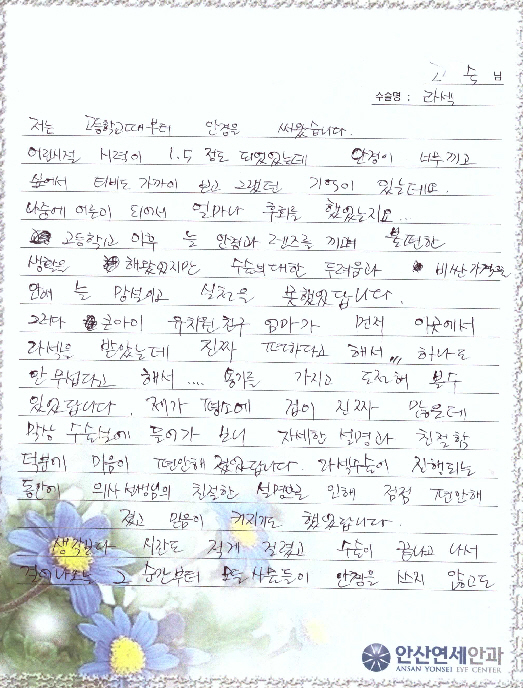 고 숙 님
수술명 : 라섹
저는 고등학교때부터 안경을 써왔습니다.
어린시절 시력이 1.5 정도 되었었는데 안경이 너무 끼고
싶어서 티비도 가까이 보고 그랬던 기억이 있는데요.
나중에 어른이 되어서 얼마나 후회를 했었는지요...
고등학교 이후 늘 안경과 렌즈를 끼고 불편한
생활을 해왔었지만 수술에대한 두려움과 비싼가격을
인해 늘 망설이고 실천을 못했었답니다.
그러다 큰아이 유치원친구 엄마가 먼저 이곳에서
라섹을 받았는데 진짜 편하다고 해서,,, 하나도
안 무섭다고 해서 .... 용기를 가지고 도전해 볼수
있었답니다. 제가 평소에 겁이 진짜 많은데
막상 수술실에 들어가 보니 자세한 설명과 친절함
덕분에 마음이 편안해 졌었답니다. 라섹수술이 진행되는
동안에 의사선생님의 친절한 설명으로 인해 점점 편안해
졌고 믿음이 커지기도 했었답니다.
생각보다 시간도 적게 걸렸고 수술이 끝나고 나서
그 순간부터 모든 사물들이 안경을 쓰지 않고도
안산연세안과
ANSAN YONSEI EYE CENTER